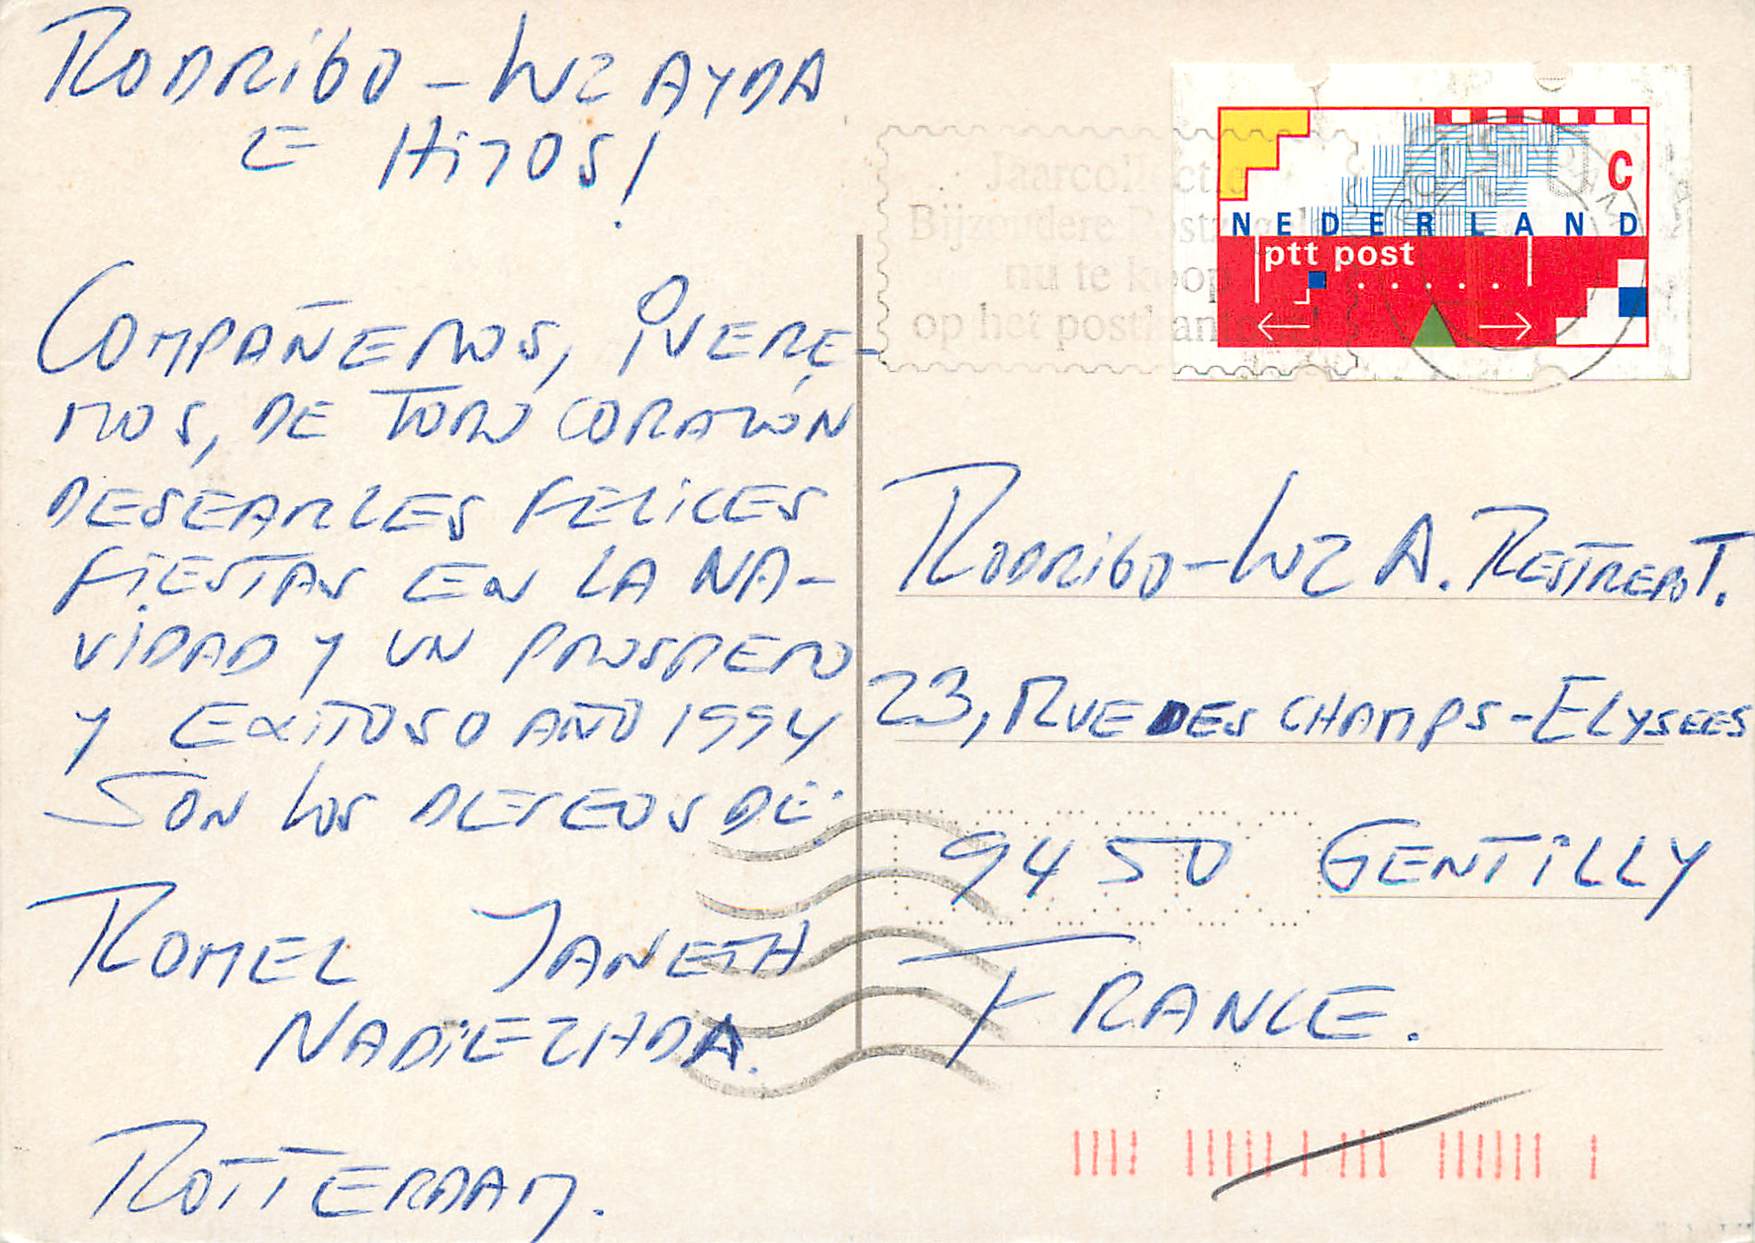 RODRIGO - LUZ AYDA
E HIJOS!
COMPAÑEROS, QUERE-
MOS, DE TODO CORAZÓN
DESEARLES FELICES
FIESTAS EN LA NA-
VIDAD Y UN PROSPERO
Y EXITOSO AÑO 1994
SON LOS DESEOS DE:
ROMEL JANETH
NADIEZHDA.
ROTTERDAM.
Jaarcollectie
Bijzondere Postzegels
nu te koop
op het postkantoor
C
NEDERLAND
ptt post
RODRIGO - LUZ A. RESTREPO T.
23, RUE DES CHAMPS-ELYSEES
9450 GENTILLY
FRANCE.